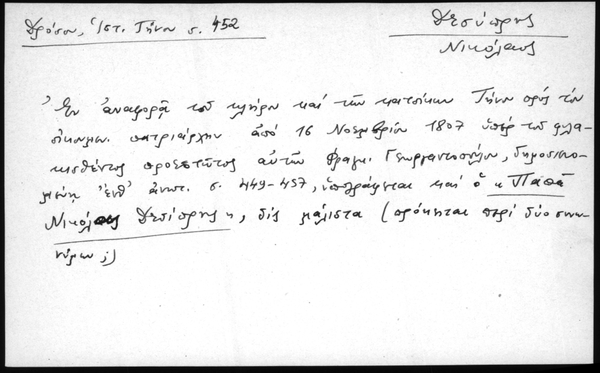 Δρόσου, Ἱστ. Τήνου σ. 452
Δεσύπρης
Νικόλαος
Ἐν ἀναφορᾷ τοῦ κλήρου καὶ τῶν κατοίκων Τήνου πρὸς τὸν
οἰκουμεν. πατριάρχην ἀπὸ 16 Νοεμβρίου 1807 ὑπὲρ τοῦ φυλα-
κισθέντος προεστῶτος αὐτῶν Φραγκ. Γεωργαντοπούλου, δημοσιευο-
μένῃ ἔνθ' ἀνωτ. σ. 449-457, ὑπογράφεται καὶ ὁ "Παπᾶ
Νικόλαος Δεσίπρης", δὶς μάλιστα (πρόκηται περὶ δύο συνω-
νύμων;)